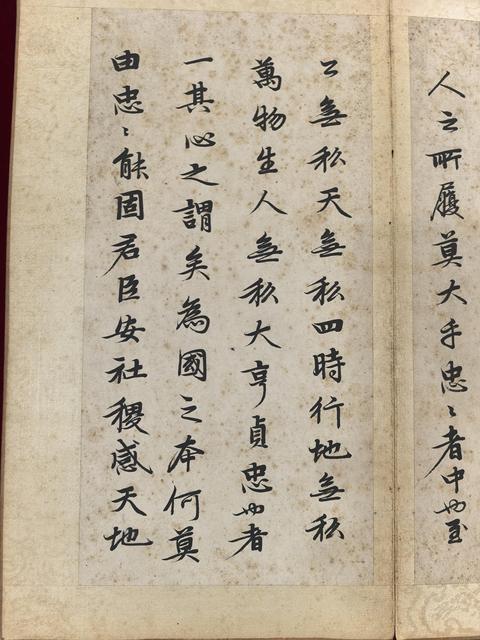 人之所履莫大乎忠〻者中也至
公無私天無私四時行地無私
萬物生人無私大亨貞忠也者
一其心之謂矣為國之本何莫
由忠〻能固君臣安社稷感天地